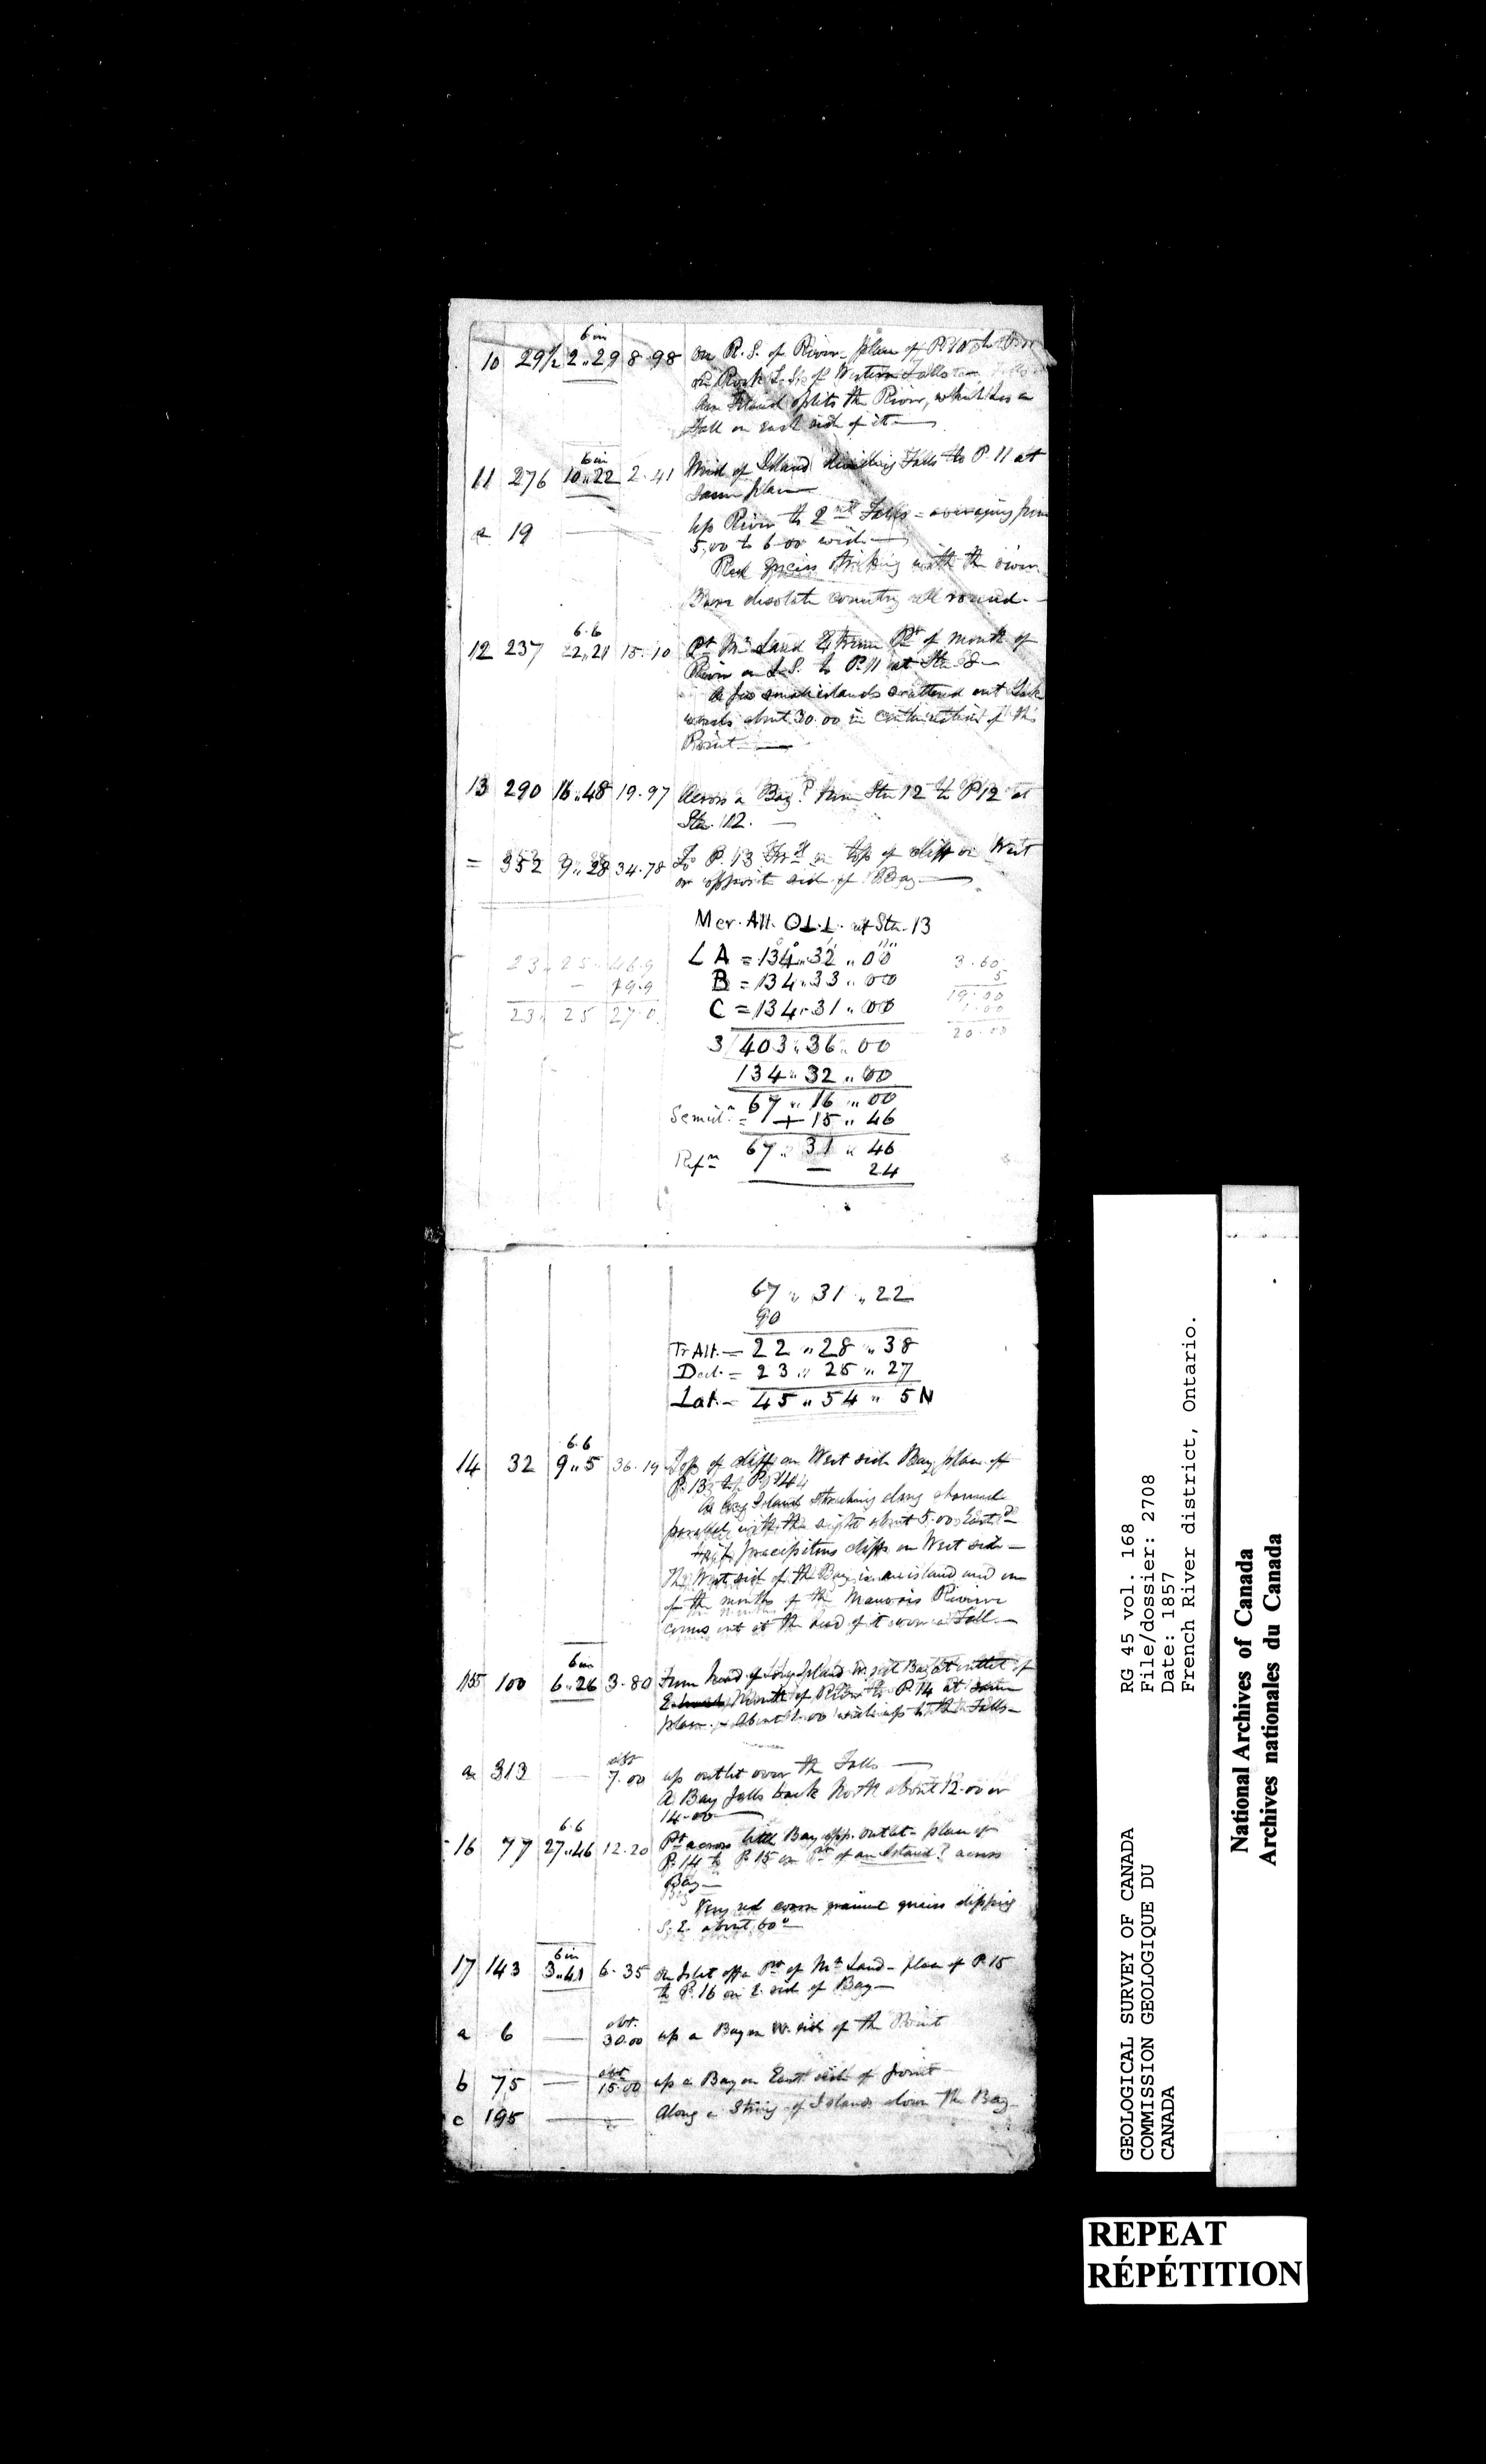 6 in
10 29½ 2"29 8.98 on R. S. of River - place of P.
on Rock L. S. of Western Falls
An Island splits the River, which has a
Fall on each side of it —
6 in
11 276 10"22 2.41 Mid of Island dividing Falls to P. 11 at
same place —
a 19 — up River to 2nd Falls - averaging from
5.00 to 6.00 wide —
Red gneiss striking with the river
Bare desolate country all round. —
6.6
12 237 22"21 15.10 Pt Mn Land Extreme Pt of mouth of
River on L. S. to P. 11 at Stn 8 —
A few small islands scattered out Lake
wards about 30.00 in continuation of this
Point —
13 290 16"48 19.97 Across a Bay? from Stn 12 to P 12 at
Stn. 12. —
= 352 9"28 34.78 To P. 13 on top of cliff on West
or opposite side of Bay —
Mer. Alt. O L.L. at Stn. 13
23 " 25 " 46.9
— 19.9
23 " 25 27.0
∠ A = 134° " 32' " 00"
B = 134 " 33 " 00
C = 134 " 31 " 00
3/403 " 36 " 00
134 " 32 " 00
67 " 16 " 00
3.60
5
19.00
1.00
20.00
Semid.r = + 15 " 46
67 " 31 " 46
Refn — 24
67 " 31 " 22
90
Tr Alt. = 22 " 28 " 38
Decl. = 23 " 25 " 27
Lat. = 45 " 54 " 5 N
6.6
14 32 9"5 36.19 Top of cliff on West side Bay, place of
P. 13 to P. 14
A long Island stretching along channel
parallel with the sight about 5.00 East
High precipitous cliffs on West side —
The West side of the Bay is an island and one
of the mouths of the Mauvais Riviere
comes out at the head of it over a Fall. —
6 in
15 100 6"26 3.80 From head of long Island W. side Bay at outlet of
E. branch Mouth of River to P. 14 at same
place. - About 1.00 wide up to the Falls —
a 313 — abt 7.00 up outlet over the Falls —
A Bay falls back North about 12.00 or
14.00 —
6.6
16 77 27"46 12.20 Pt across little Bay opp. outlet - place of
P. 14 to P. 15 on Pt of an Island? across
Bay —
Very red coarse grained gneiss dipping
S. E. about 60° —
6 in
17 143 3"41 6.35 on Islet off a Pt of Mn Land - place of P. 15
to P. 16 on E. side of Bay —
a 6 — abt. 30.00 up a Bay on W. side of the Point
b 75 — abt 15.00 up a Bay on East side of point —
c 195 — Along a String of Islands down the Bay —
GEOLOGICAL SURVEY OF CANADA
COMMISSION GEOLOGIQUE DU
CANADA
RG 45 vol. 168
File/dossier: 2708
Date: 1857
French River district, Ontario.
National Archives of Canada
Archives nationales du Canada
REPEAT
RÉPÉTITION